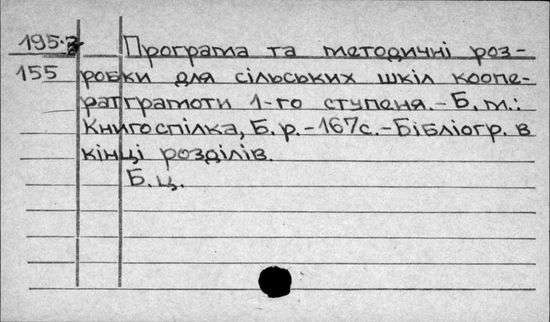 195.2 Програма та методичні роз-
155 робки для сільських шкіл коопе-
ратграмоти 1-го ступеня.-Б.м.:
Книгоспілка, Б.р.-167с.-Бібліогр. в
кінці розділів.
Б.ц.